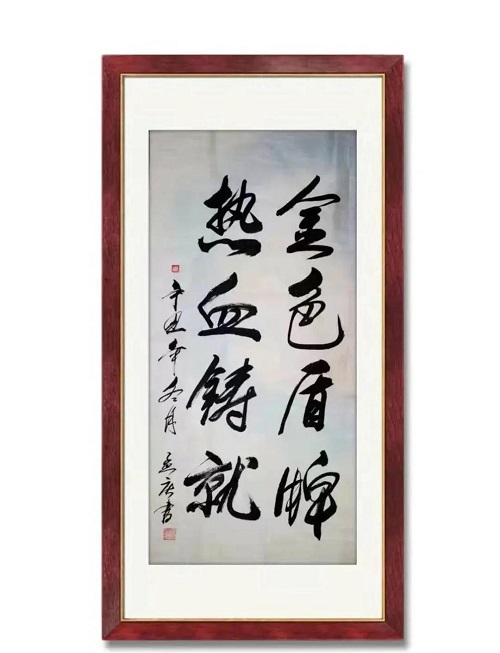 金色盾牌
热血铸就
辛丑年冬月
书